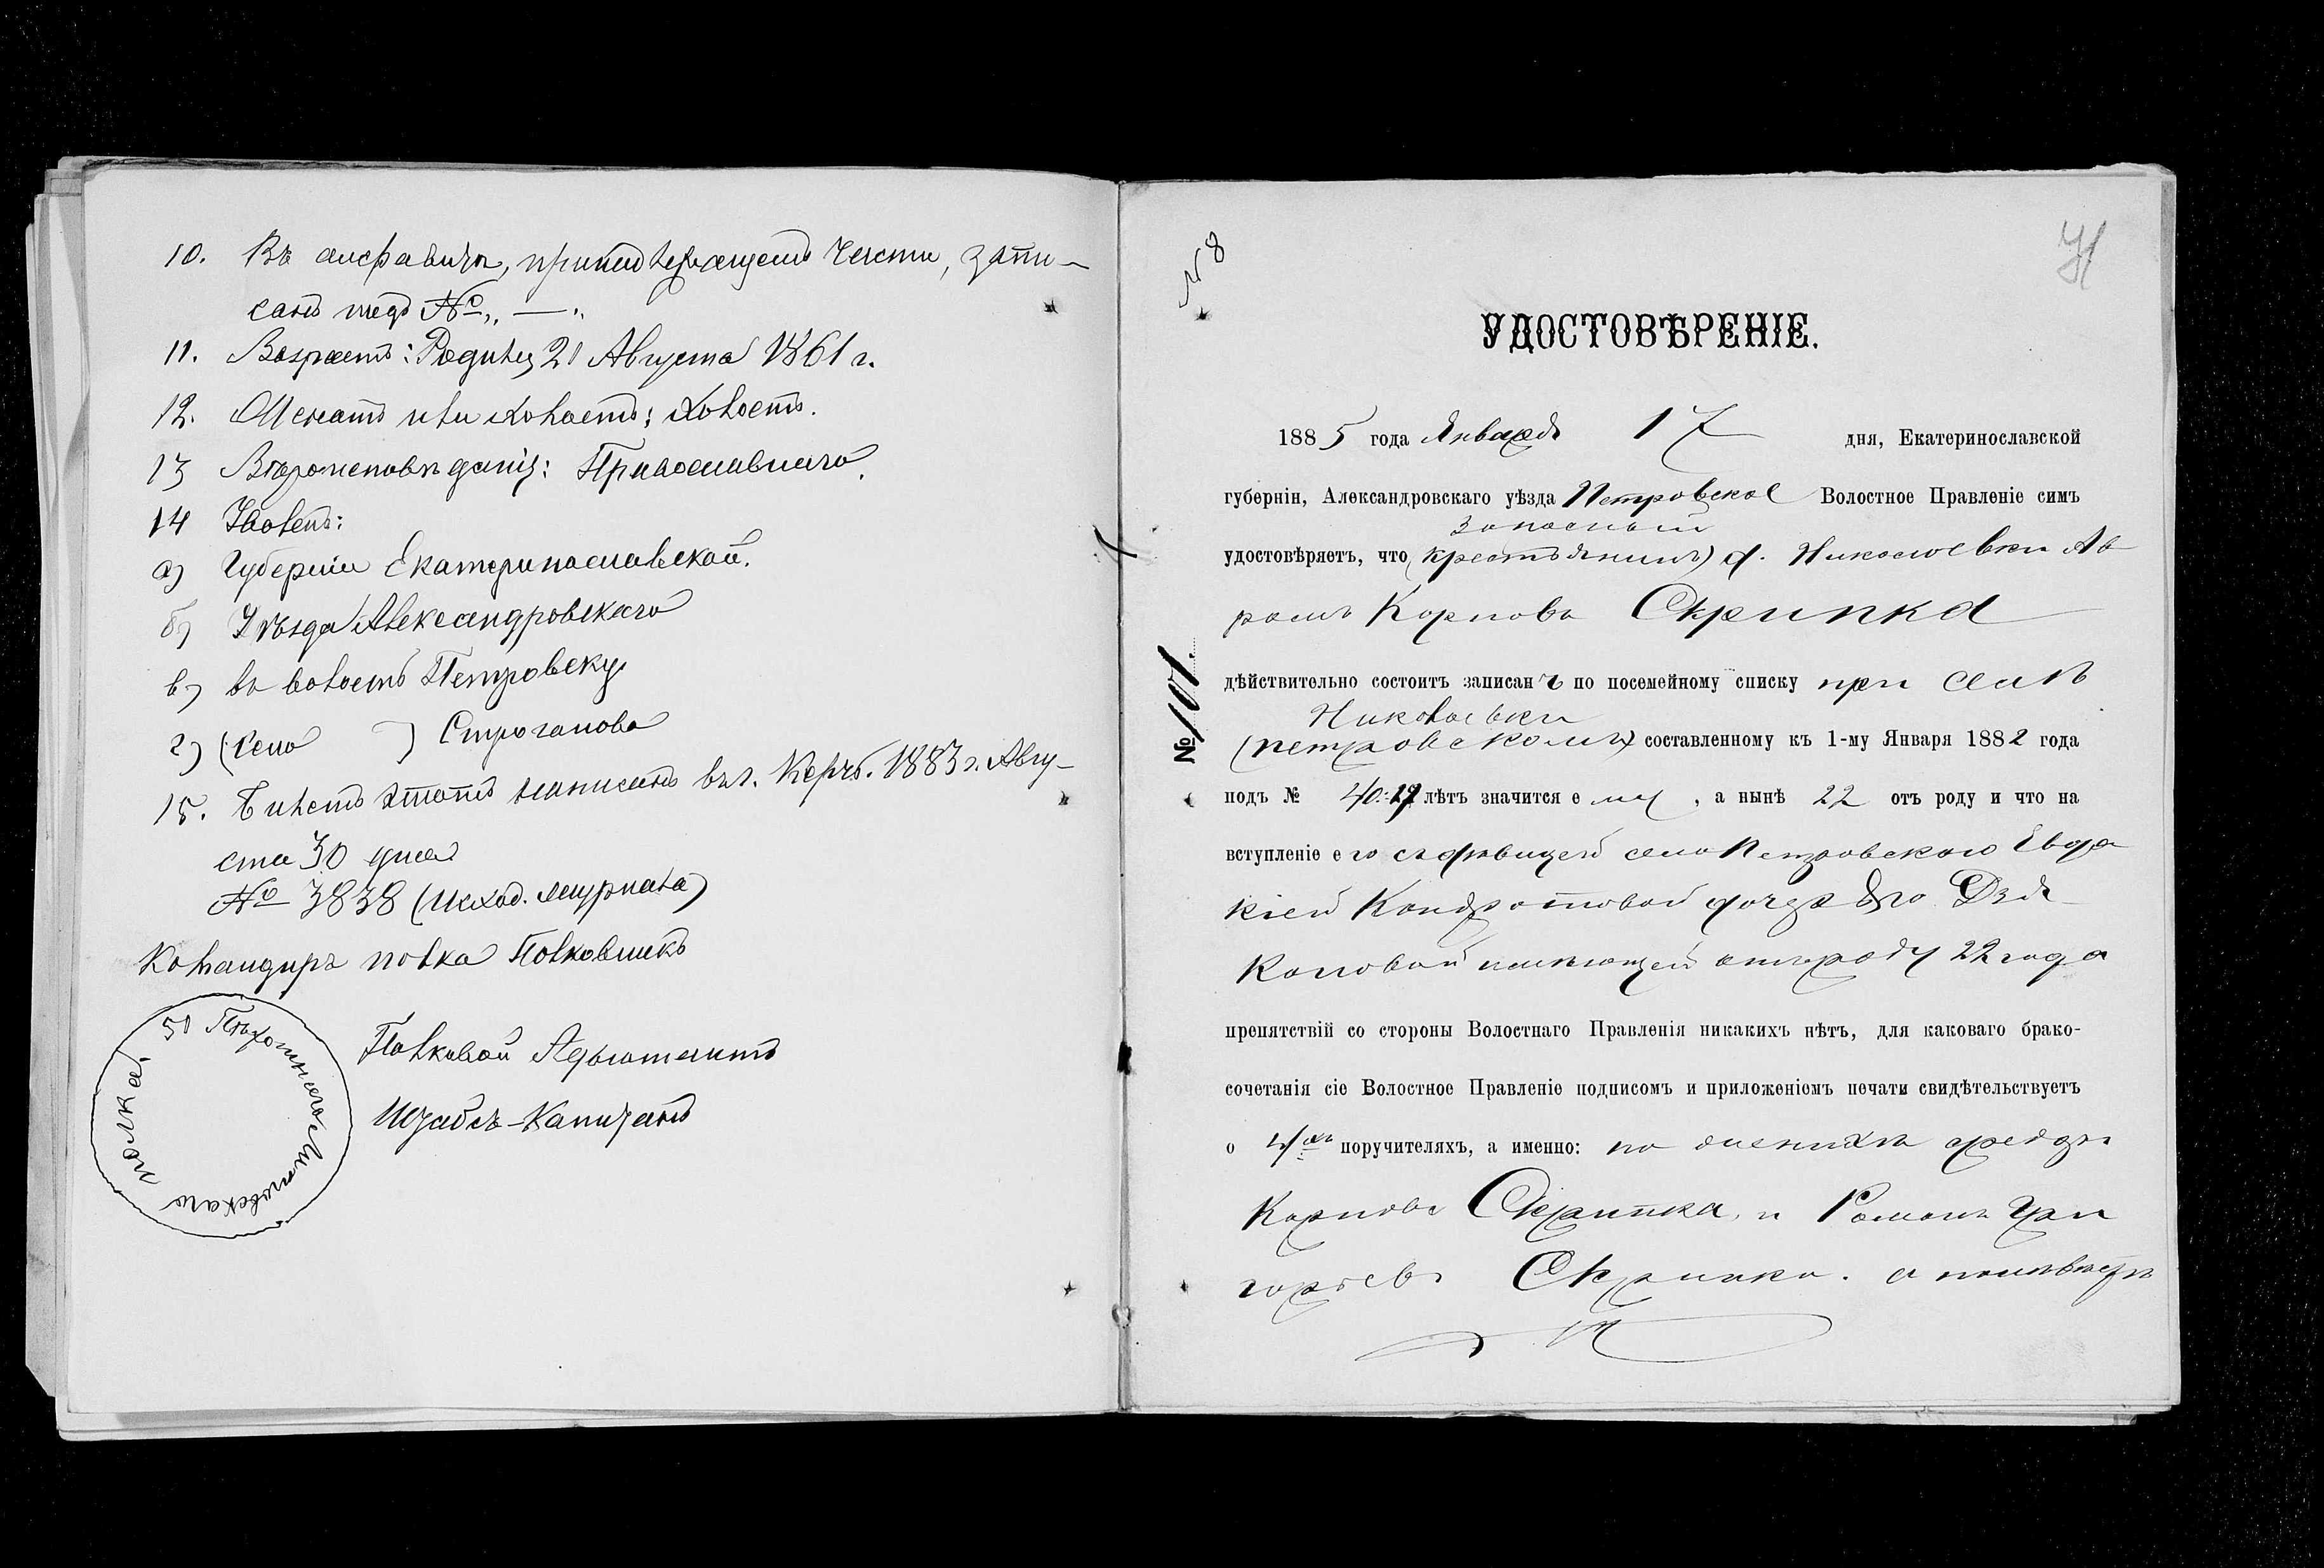 10. Въ алфавитѣ, принадлежащемъ части, запи-
санъ подъ № „ — „
11. Возрастъ: Родился 21 Августа 1861 г.
12. Женатъ или холостъ: Холостъ.
13 Вѣроисповѣданія: Православнаго.
14 Уволенъ:
а) Губерніи Екатеринославской.
б) Уѣзда Александровскаго
в) въ волость Петровску
г) (село ) Строганова
15. Билетъ этотъ написанъ въ г. Керчь. 1883 г. Авгу-
ста 30 дня
№ 3838 (исход. журнала)
Командиръ полка Полковникъ
51 Пѣхотнаго Литовскаго полка.
Полковой Адъютантъ
Штабсъ-Капитанъ
№ 8
УДОСТОВѢРЕНІЕ.
1885 года Января 17 дня, Екатеринославской
губерніи, Александровскаго уѣзда Петровское Волостное Правленіе симъ
запасный
удостовѣряетъ, что (крестьянинъ) д. Николаевки Ав-
рамъ Карповъ Скрипка
дѣйствительно состоитъ записанъ по посемейному списку при селѣ
Николаевки
(петровскомъ) составленному къ 1-му Января 1882 года
№ 101.
подъ № 40. 19 лѣтъ значится ему, а нынѣ 22 отъ роду и что на
вступленіе его съ дѣвицей села Петровскаго Евдо
кіей Кондратовой дочерью Дзя
ковой имѣющей отъ роду 22 года
препятствій со стороны Волостнаго Правленія никакихъ нѣтъ, для каковаго брако-
сочетанія сіе Волостное Правленіе подписомъ и приложеніемъ печати свидѣтельствуетъ
о 4хъ поручителяхъ, а именно: по женихѣ
Карповъ Скрипка, и Романъ Гри
горьевъ Скрипка. а по невѣстѣ